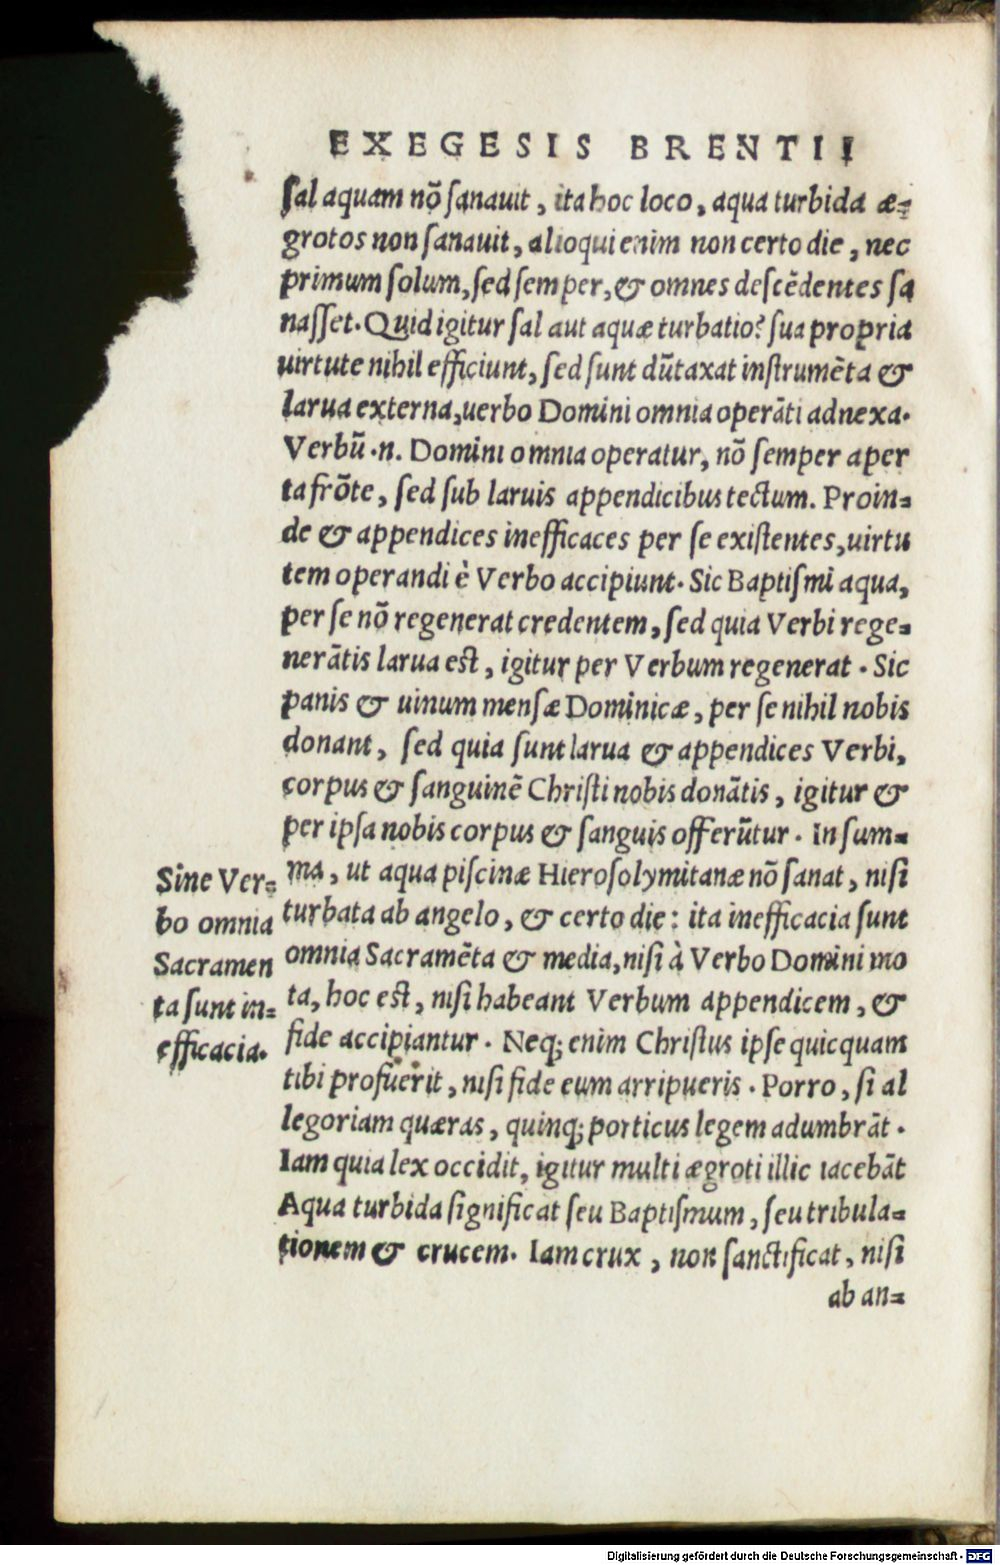 EXEGESIS BRENTII
ſal aquam nõ ſanauit, ita hoc loco, aqua turbida æ-
grotos non ſanauit, alioqui enim non certo die, nec
primum ſolum, ſed ſemper, & omnes deſcẽdentes ſa
naſſet. Quid igitur ſal aut aquæ turbatio? ſua propria
uirtute nihil efficiunt, ſed ſunt dũtaxat inſtrumẽta &
larua externa, uerbo Domini omnia operãti adnexa.
Verbũ .n. Domini omnia operatur, nõ ſemper aper
ta frõte, ſed ſub laruis appendicibus tectum. Proin-
de & appendices inefficaces per ſe exiſtentes, uirtu
tem operandi è Verbo accipiunt. Sic Baptiſmi aqua,
per ſe nõ regenerat credentem, ſed quia Verbi rege-
nerãtis larua eſt, igitur per Verbum regenerat. Sic
panis & uinum menſæ Dominicæ, per ſe nihil nobis
donant, ſed quia ſunt larua & appendices Verbi,
corpus & ſanguinẽ Chriſti nobis donãtis, igitur &
per ipſa nobis corpus & ſanguis offerũtur. In ſum-
ma, ut aqua piſcinæ Hieroſolymitanæ nõ ſanat, niſi
turbata ab angelo, & certo die: ita inefficacia ſunt
omnia Sacramẽta & media, niſi à Verbo Domini mo
ta, hoc eſt, niſi habeant Verbum appendicem, &
fide accipiantur. Neq; enim Chriſtus ipſe quicquam
tibi profuerit, niſi fide eum arripueris. Porro, ſi al
legoriam quæras, quinq; porticus legem adumbrãt.
Iam quia lex occidit, igitur multi ægroti illic iacebãt
Aqua turbida ſignificat ſeu Baptiſmum, ſeu tribula-
tionem & crucem. Iam crux, non ſanctificat, niſi
ab an-
Sine Ver-
bo omnia
Sacramen
ta ſunt in-
efficacia.
Digitalisierung gefördert durch die Deutsche Forschungsgemeinschaft - DFG